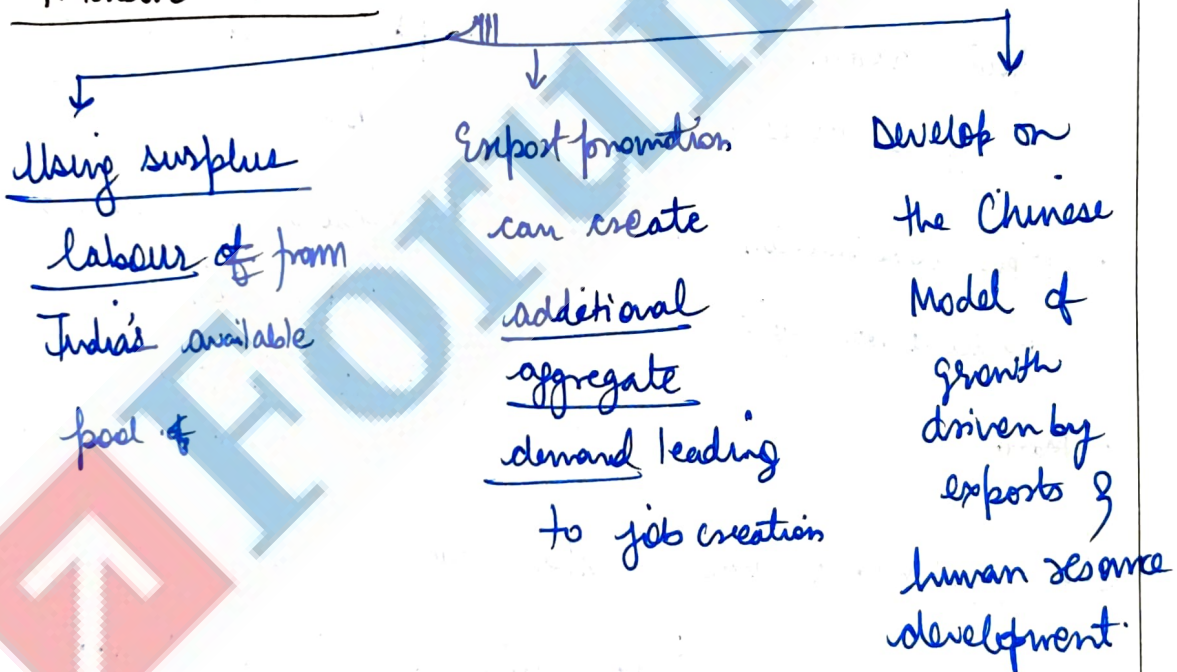 Using surplus
labour of from
India's available
pool of
Export promotion
can create
additional
aggregate
demand leading
to job creation
Develop on
the Chinese
Model of
growth
driven by
exports &
human resource
development.
Forum